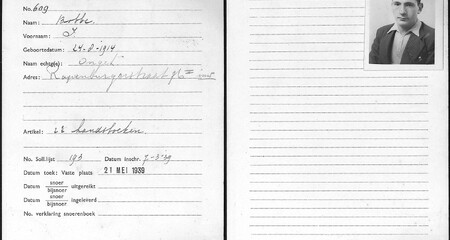 No. 609
Naam: Bobbe
Voornaam: I
Geboortedatum: 24-8-1914
Naam echtg(e): Ongeh
Adres: Rapenburgerstraat
Artikel: handstoeken
No. Soll.lijst 193 Datum inschr. 7-3-39
Datum toek: Vaste plaats 21 MEI 1939
Datum snoer / bijsnoer uitgereikt
Datum snoer / bijsnoer ingeleverd
No. verklaring snoerenboek